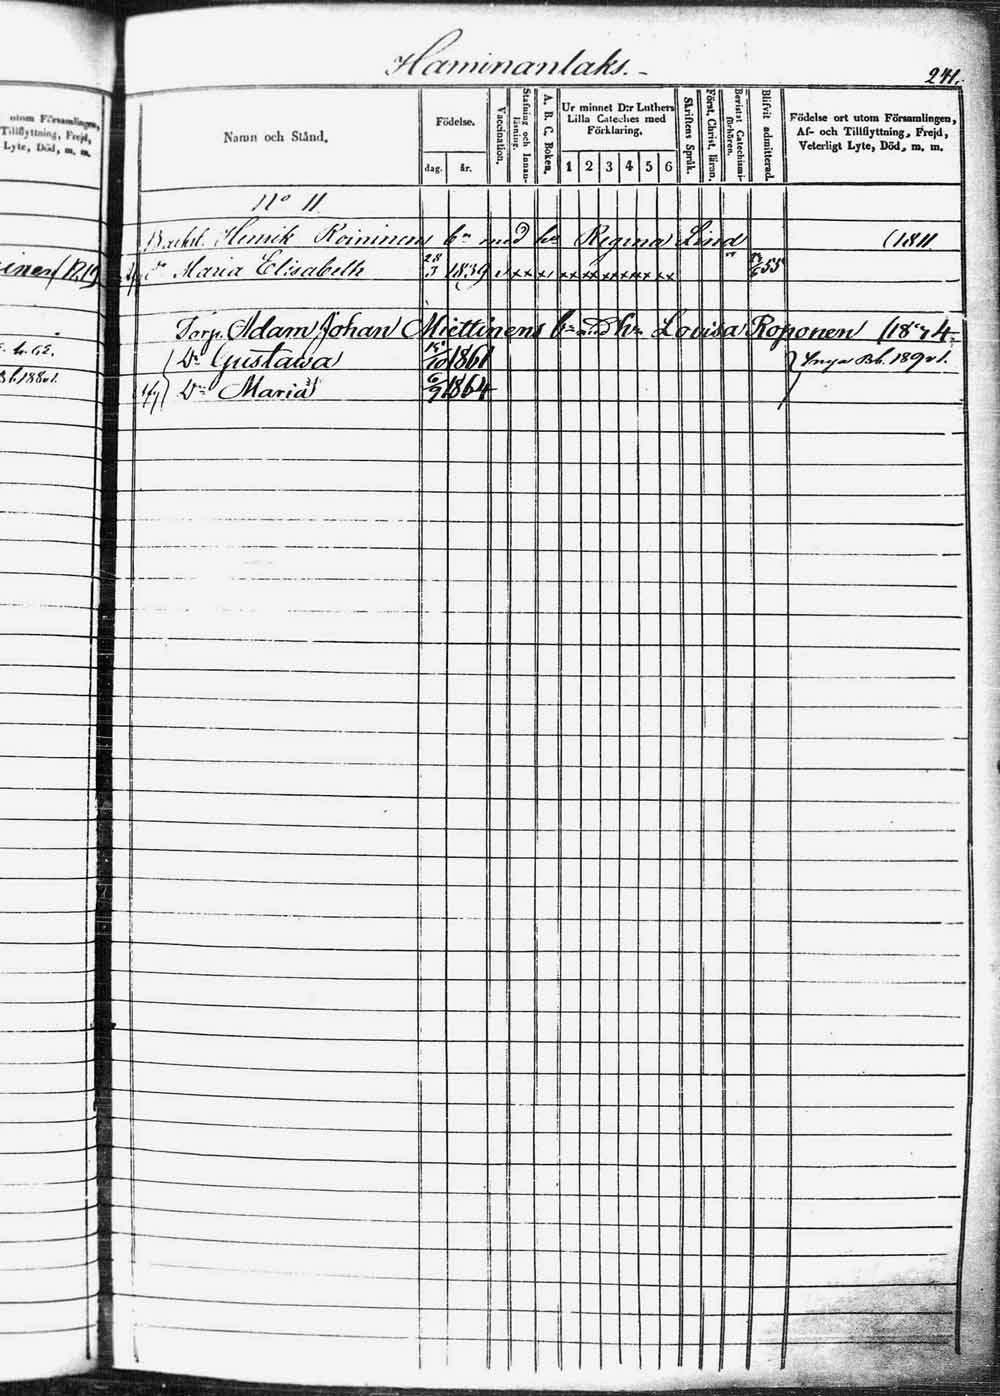 Haminanlaks.
241.
utom Församlingen,
Tillflyttning, Frejd,
Lyte, Död, m. m.
Namn och Stånd.
Födelse.
dag.
år.
Vaccination.
Stafning och Innan-
läsning.
A. B. C. Boken.
Ur minnet D:r Luthers
Lilla Cateches med
Förklaring.
1 2 3 4 5 6
Skriftens Språk.
Först. Christ. läran.
Bevistat Catechismi-
förhören.
Blifvit admitterad.
Födelse ort utom Församlingen,
Af- och Tillflyttning, Frejd,
Veterligt Lyte, Död, m. m.
No 11
Henrik Roininens bn med hu Regina Lind (1811
Dr Maria Elisabeth 28/3 1839 x x x x x x x x x x 55
Torp. Adam Johan Miettinens bn med hu Lovisa Roponen
Dr Gustava 1861
Dr Maria 6/9 1864